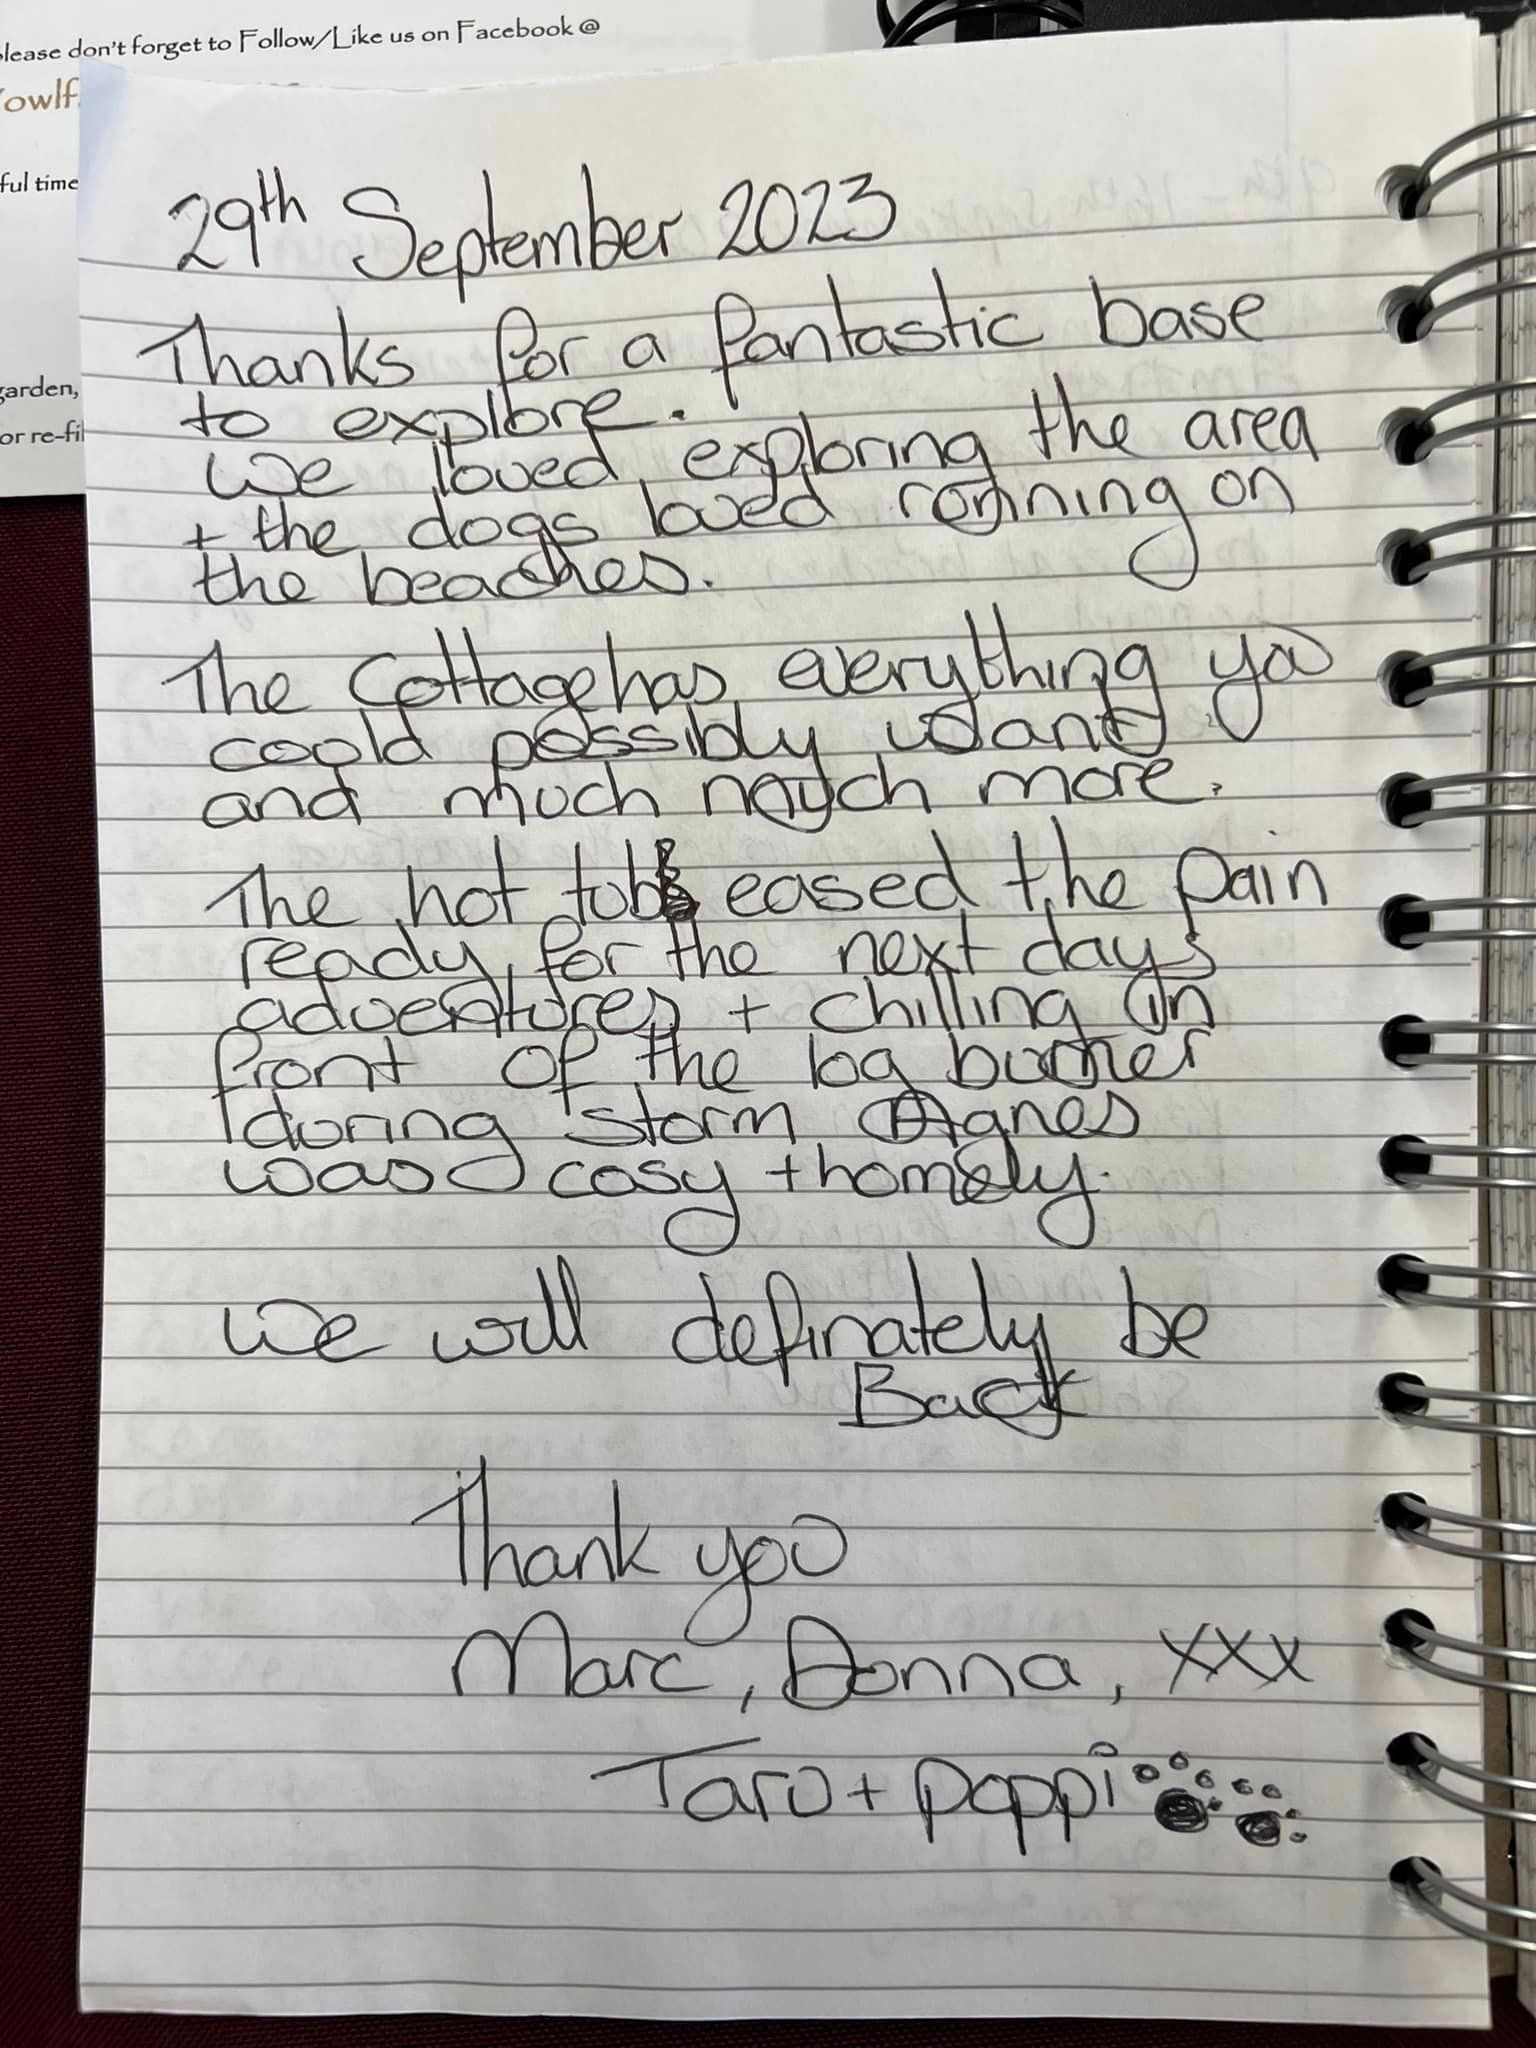 please don't forget to Follow/Like us on Facebook @
owlf
ful time
garden,
or re-fil
29th September 2023
Thanks for a fantastic base
to explore.
We loved exploring the area
+ the dogs loved running on
the beaches.
The Cottage has everything you
could possibly want
and much much more.
The hot tub eased the pain
ready for the next days
adventures + chilling in
front of the log burner
during storm Agnes
was cosy + homely.
We will definately be
Back
Thank you
Marc, Donna, xxx
Taro + poppi